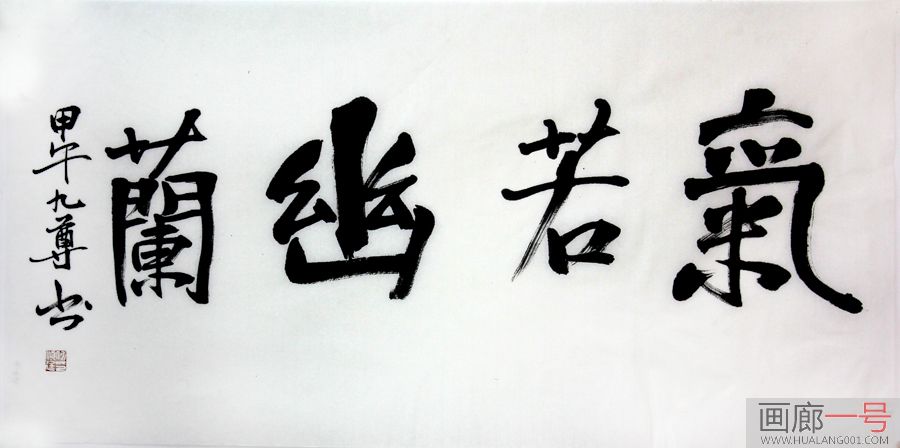 氣若幽蘭
甲午九尊书
画廊一号
WWW.HUALANG001.COM